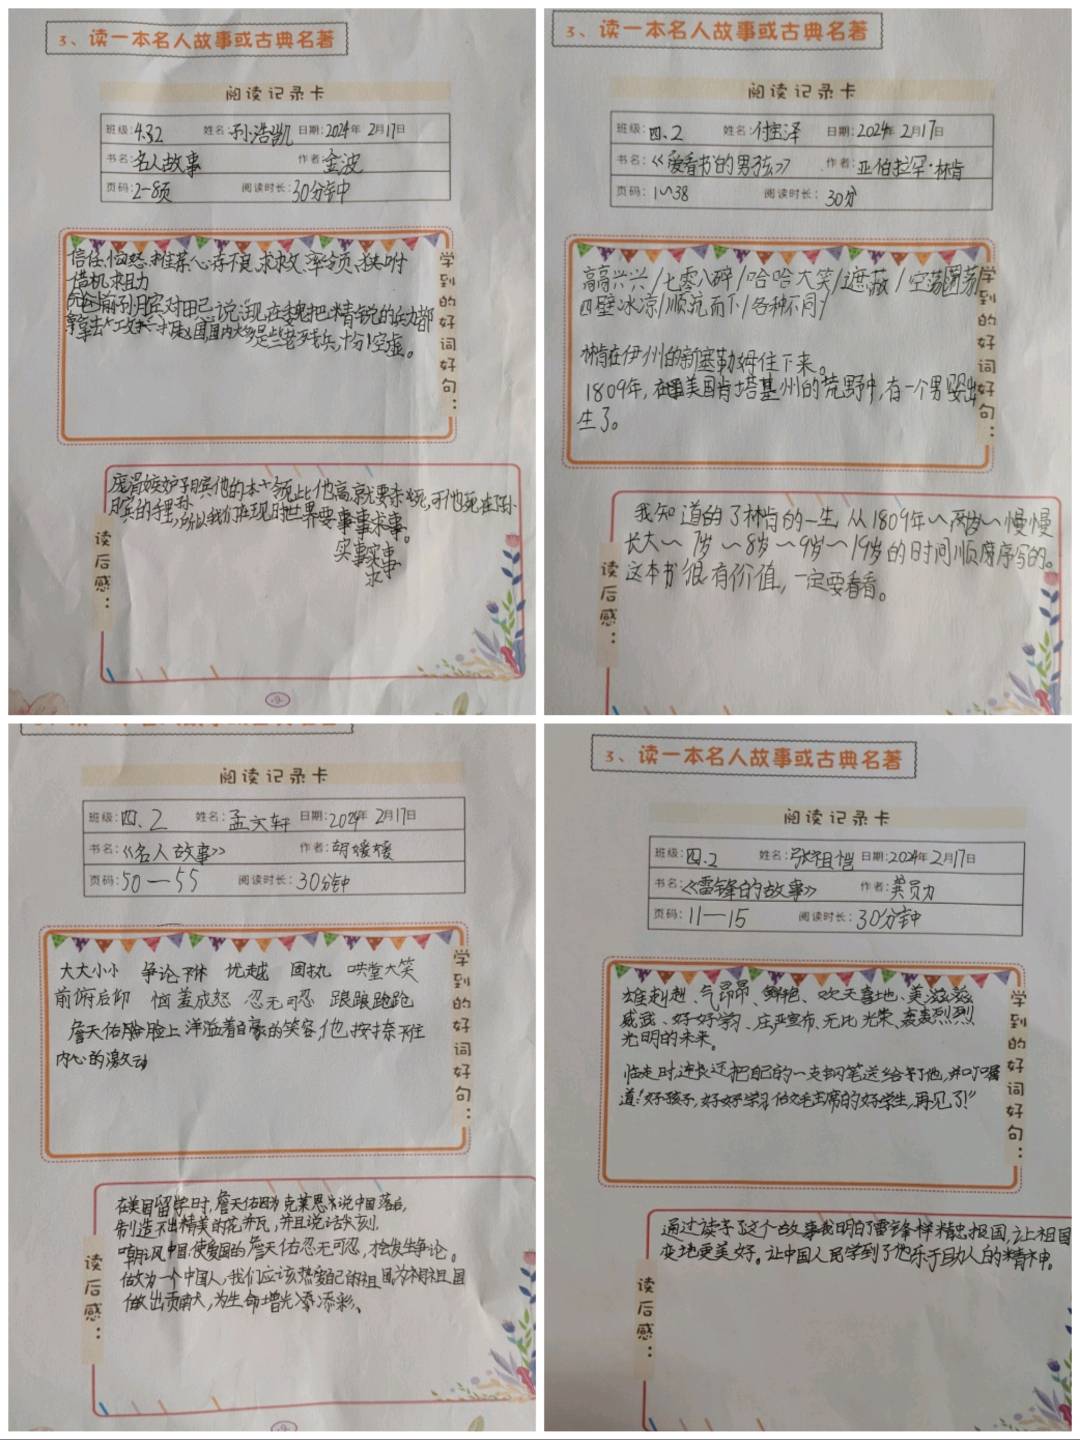 3、读一本名人故事或古典名著
阅读记录卡
班级:4.32 姓名:孙浩凯 日期:2024年2月17日
书名:名人故事 作者:金波
页码:2-8页 阅读时长:30分钟
学到的好词好句：
信任、恼怒、推荐、心存不良、求救、率领、
借机、阻力
读后感：
所以我们在现时世界要事事求事。
实事实事
求
9
3、读一本名人故事或古典名著
阅读记录卡
班级:四、2 姓名:付宝泽 日期:2024年2月17日
书名:《爱看书的男孩》 作者:亚伯拉罕·林肯
页码:1~38 阅读时长:30分
学到的好词好句：
高高兴兴/七零八碎/哈哈大笑/遮蔽/空荡
四壁冰凉/顺流而下/各种不同/
林肯在伊州的新塞勒姆住下来。
1809年,在美国肯塔基州的荒野中,有一个男婴出
生了。
读后感：
我知道的了林肯的一生,从1809年~两岁~慢慢
长大~7岁~8岁~9岁~19岁的时间顺序写的。
这本书很有价值,一定要看看。
阅读记录卡
班级:四、2 姓名:孟文轩 日期:2024年2月17日
书名:《名人故事》 作者:胡媛媛
页码:50—55 阅读时长:30分钟
学到的好词好句：
大大小小 争论不休 优越 固执 哄堂大笑
前俯后仰 恼羞成怒 忍无可忍 跟跟跄跄
詹天佑脸脸上洋溢着自豪的笑容,他按捺不住
内心的激动
读后感：
在美国留学时,詹天佑因为克莱思说中国落后,
制造不出精美的花卉瓦,并且说话尖刻,
嘲讽中国,使爱国的詹天佑忍无可忍,才会发生争论。
做为一个中国人,我们应该热爱自己的祖国,为祖国
做出贡献,为生命增光添彩、
3、读一本名人故事或古典名著
阅读记录卡
班级:四、2 姓名:张祖恺 日期:2024年2月17日
书名:《雷锋的故事》 作者:龚员力
页码:11—15 阅读时长:30分钟
学到的好词好句：
雄赳赳、气昂昂、鲜艳、欢天喜地、美滋滋
威武、好好学习、庄严宣布、无比光荣、轰轰烈烈
光明的未来。
临走时,连长还把自己的一支钢笔送给了他,并叮嘱
道:"好孩子,好好学习做毛主席的好学生,再见了!"
读后感：
通过读了这个故事我明白了雷锋样精忠报国,让祖国
变地更美好。让中国人民学到了他乐于助人的精神。